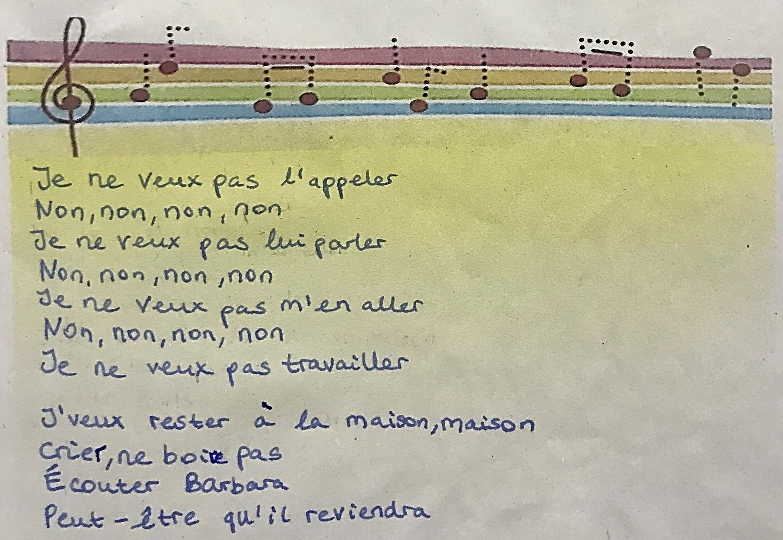 Je ne veux pas l'appeler
Non, non, non, non
Je ne veux pas lui parler
Non, non, non, non
Je ne veux pas m'en aller
Non, non, non, non
Je ne veux pas travailler
J'veux rester à la maison, maison
Crier, ne boire pas
Écouter Barbara
Peut-être qu'il reviendra